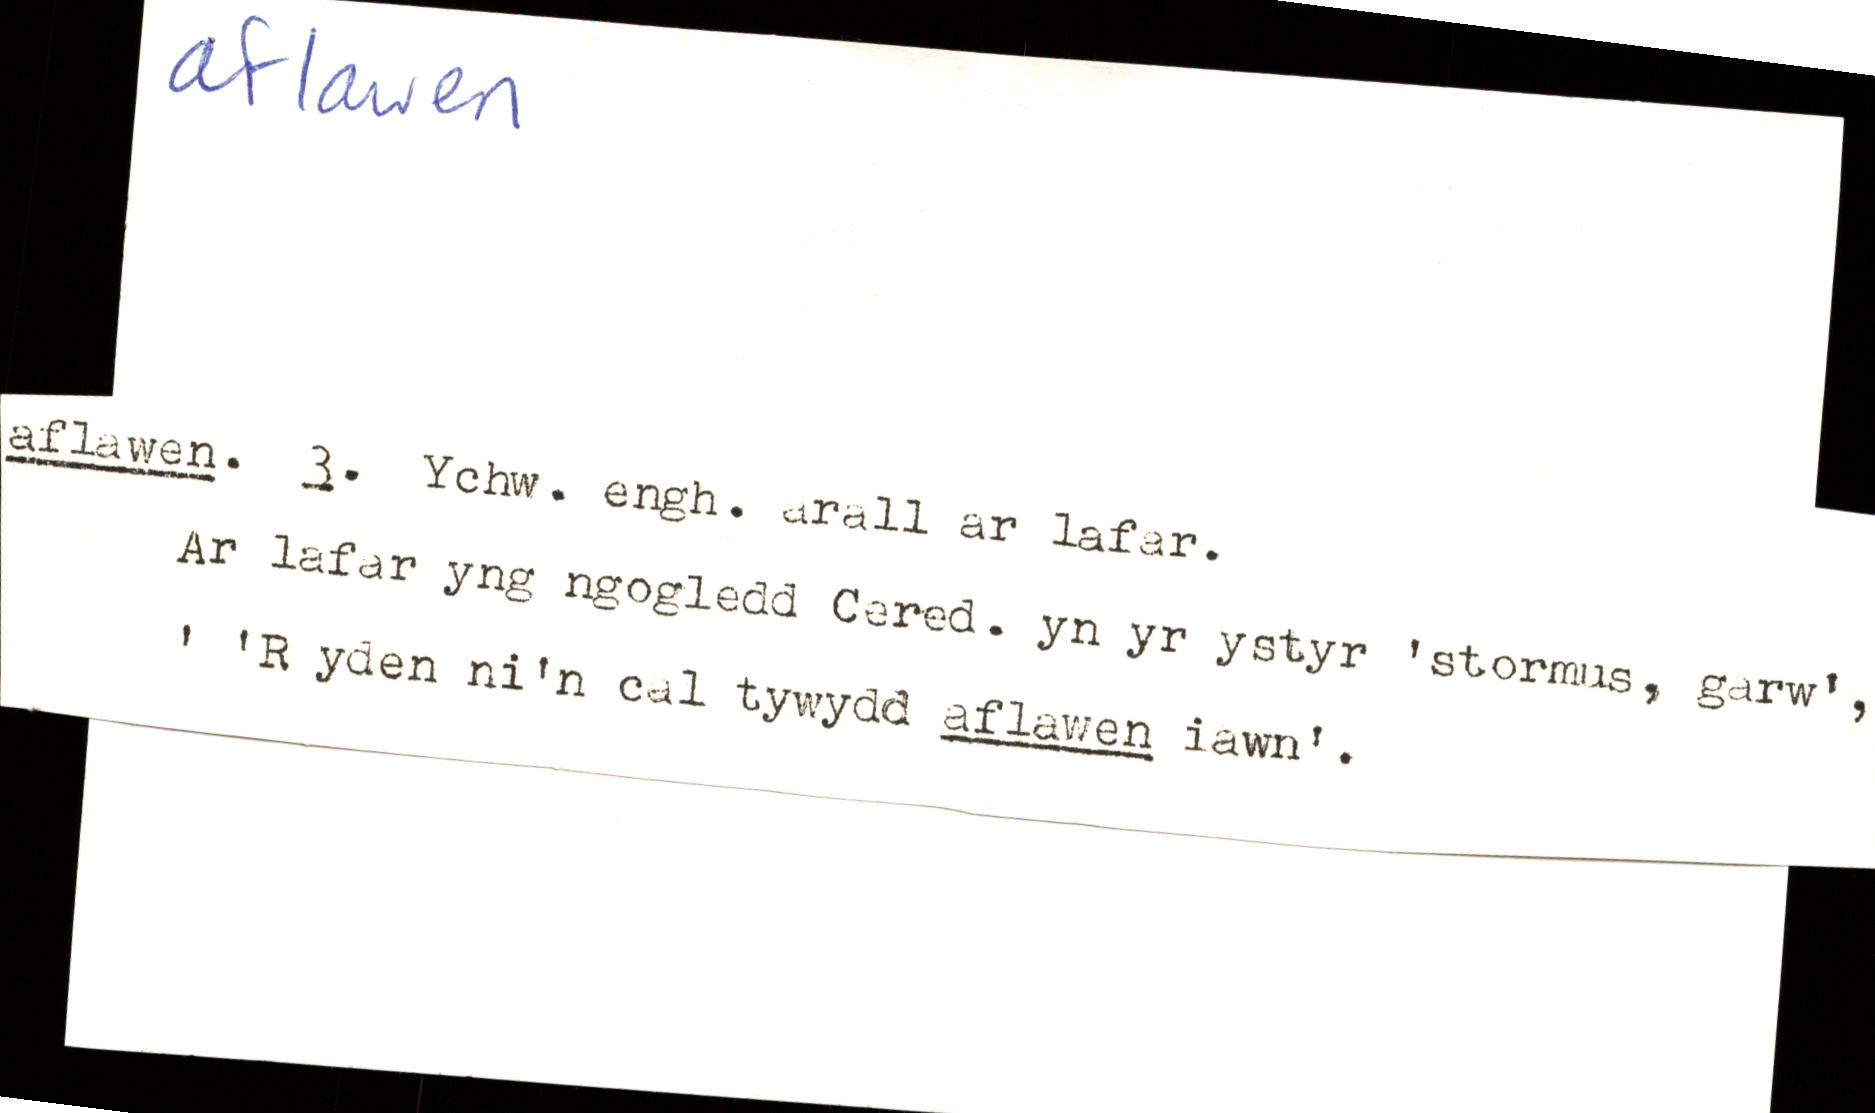 aflawen
aflawen. 3. Ychw. engh. arall ar lafar.
Ar lafar yng ngogledd Cered. yn yr ystyr 'stormus, garw',
' 'R yden ni'n cal tywydd aflawen iawn'.